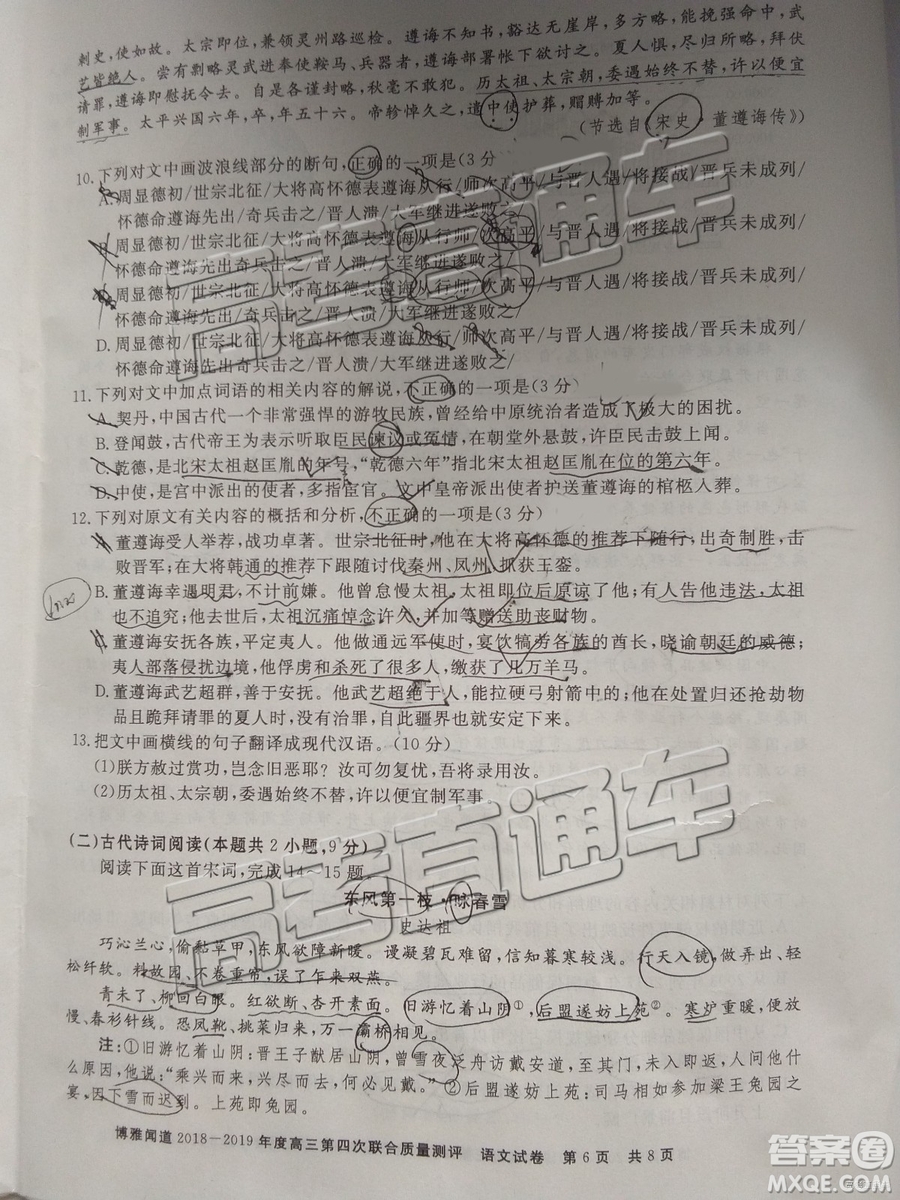 刺史,使如故。太宗即位,兼领灵州路巡检。遵诲不知书,豁达无崖岸,多方略,能挽强命中,武
艺皆绝人。尝有剽略灵武进奉使鞍马、兵器者,遵诲部署帐下欲讨之。夏人惧,尽归所略,拜伏
请罪,遵诲即慰抚令去。自是各谨封略,秋毫不敢犯。历太祖、太宗朝,委遇始终不替,许以便宜
制军事。太平兴国六年,卒,年五十六。帝轸悼久之,遣中使护葬,赗赙加等。
(节选自《宋史·董遵诲传》)
10.下列对文中画波浪线部分的断句,正确的一项是(3分
A.周显德初/世宗北征/大将高怀德表遵诲从行/师次高平/与晋人遇/将接战/晋兵未成列/
怀德命遵诲先出/奇兵击之/晋人溃/大军继进遂败之/
B.周显德初/世宗北征/大将高怀德表遵诲从行师/次高平/与晋人遇/将接战/晋兵未成列/
怀德命遵诲先出奇兵击之/晋人溃/大军继进遂败之/
周显德初/世宗北征/大将高怀德表遵诲从行师/次高平/与晋人遇/将接战/晋兵未成列/
怀德命遵诲先出/奇兵击之/晋人溃/大军继进遂败之/
D.周显德初/世宗北征/大将高怀德表遵诲从行/师次高平/与晋人遇/将接战/晋兵未成列/
怀德命遵诲先出奇兵击之/晋人溃/大军继进遂败之/
11.下列对文中加点词语的相关内容的解说,不正确的一项是(3分)
A.契丹,中国古代一个非常强悍的游牧民族,曾经给中原统治者造成了极大的困扰。
B.登闻鼓,古代帝王为表示听取臣民谏议或冤情,在朝堂外悬鼓,许臣民击鼓上闻。
C.乾德,是北宋太祖赵匡胤的年号,“乾德六年”指北宋太祖赵匡胤在位的第六年。
D.中使,是宫中派出的使者,多指宦官。文中皇帝派出使者护送董遵诲的棺柩入葬。
12.下列对原文有关内容的概括和分析,不正确的一项是(3分)
A.董遵诲受人举荐,战功卓著。世宗北征时,他在大将高怀德的推荐下随行,出奇制胜,击
败晋军;在大将韩通的推荐下跟随讨伐秦州、凤州,抓获王銮。
B.董遵诲幸遇明君,不计前嫌。他曾怠慢太祖,太祖即位后原谅了他;有人告他违法,太祖
也不追究;他去世后,太祖沉痛悼念许久,并加等赠送助丧财物。
C.董遵诲安抚各族,平定夷人。他做通远军使时,宴饮犒劳各族的酋长,晓谕朝廷的威德;
夷人部落侵扰边境,他俘虏和杀死了很多人,缴获了几万羊马。
D.董遵诲武艺超群,善于安抚。他武艺超绝于人,能拉硬弓射箭中的;他在处置归还抢劫物
品且跪拜请罪的夏人时,没有治罪,自此疆界也就安定下来。
13.把文中画横线的句子翻译成现代汉语。(10分)
(1)朕方赦过赏功,岂念旧恶耶?汝可勿复忧,吾将录用汝。
(2)历太祖、太宗朝,委遇始终不替,许以便宜制军事
(二)古代诗词阅读(本题共2小题,9分)
阅读下面这首宋词,完成14~15题
东风第一枝·咏春雪
史达祖
巧沁兰心,偷黏草甲,东风欲障新暖。谩凝碧瓦难留,信知暮寒较浅。行天入镜,做弄出、轻
松纤软。料故园、不卷重帘,误了乍来双燕。
青未了、柳回白眼。红欲断、杏开素面。旧游忆着山阴①,后盟遂妨上苑②。寒炉重暖,便放
慢、春衫针线。恐凤靴、挑菜归来,万一灞桥相见。
注:①旧游忆着山阴:晋王子猷居山阴,曾雪夜泛舟访戴安道,至其门,未入即返,人问他什
么原因,他说:“乘兴而来,兴尽而去,何必见戴。”②后盟遂妨上苑:司马相如参加梁王兔园之
宴,因下雪而迟到。上苑即兔园。
博雅闻道2018-2019年度高三第四次联合质量测评 语文试卷 第6页 共8页
高考直通车
高考直通车
答案圈
MXQE.COM